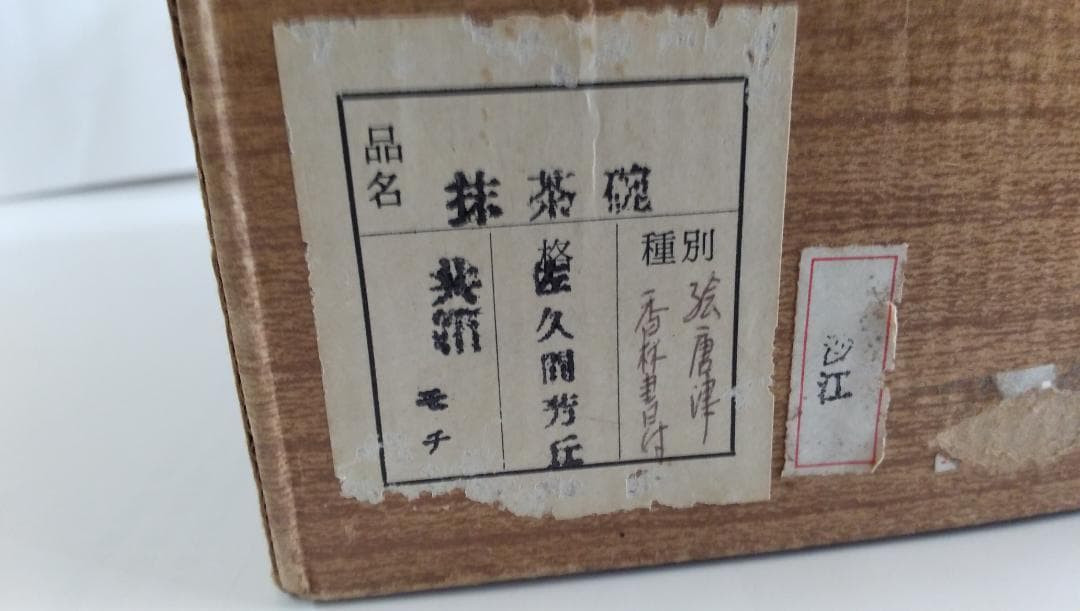 品名
抹茶碗
種別
絵唐津
香林書付
格
佐久間芳丘
共箱
モチ
江